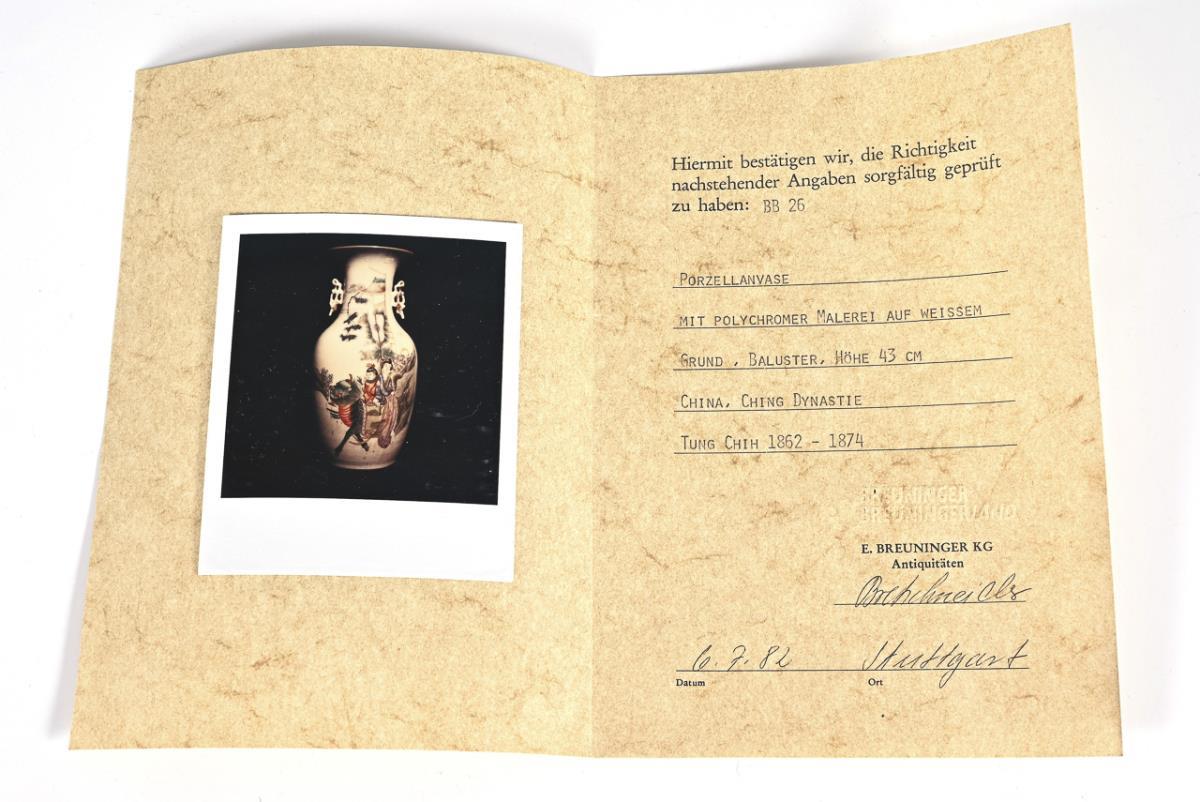 Hiermit bestätigen wir, die Richtigkeit
nachstehender Angaben sorgfältig geprüft
zu haben: BB 26
PORZELLANVASE
MIT POLYCHROMER MALEREI AUF WEISSEM
GRUND , BALUSTER, HÖHE 43 CM
CHINA, CHING DYNASTIE
TUNG CHIH 1862 - 1874
BREUNINGER
E. BREUNINGER KG
Antiquitäten
6.7.82 Stuttgart
Datum Ort